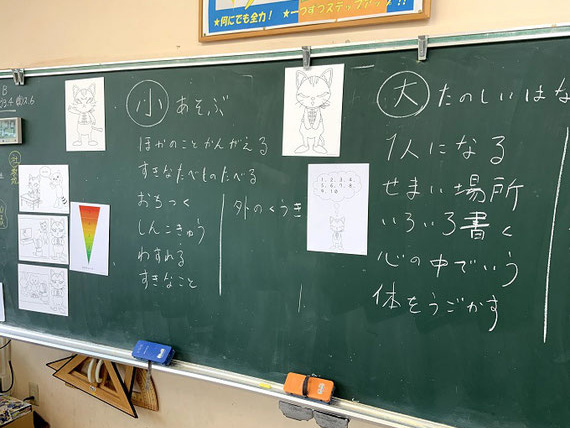 ★何にでも全力！ ★一つずつステップアップ!!
小 あそぶ
ほかのことかんがえる
すきなたべものたべる
おちつく
しんこきゅう
わすれる
すきなこと
外のくうき
大 たのしいはな
1人になる
せまい場所
いろいろ書く
心の中でいう
体をうごかす
1. 2. 3. 4.
5. 6. 7. 8.
9. 10